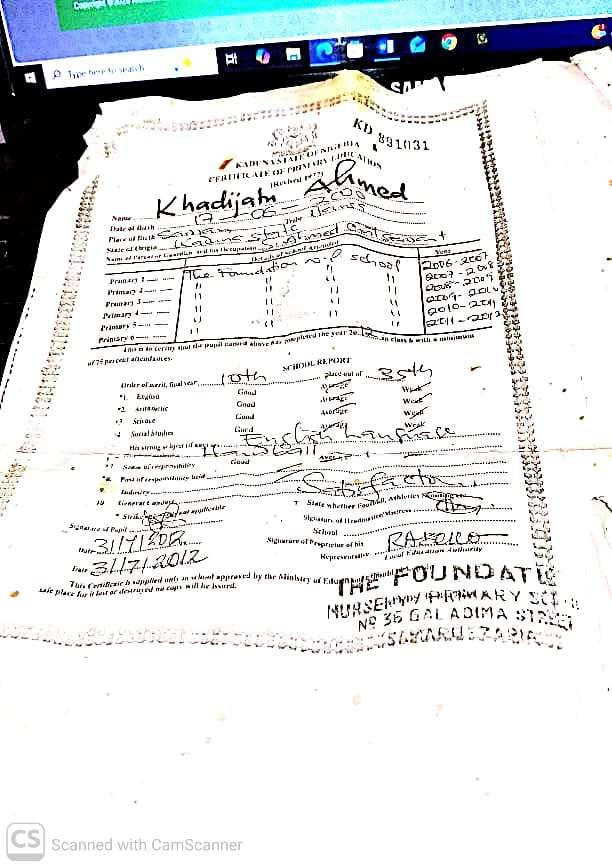 Type here to search
KD 891031
KADUNA STATE OF NIGERIA
CERTIFICATE OF PRIMARY EDUCATION
(Revised 1977)
Name Khadijatu Ahmed
Date of Birth 17-06-
Place of Birth Tribe Hausa
State of Origin Kaduna State
Name of Parent or Guardian and his Occupation Ahmed
Details of school Attended Year
Primary 1 The Foundation N.P School 2006-2007
Primary 2 " " " 2007-2008
Primary 3 " " " 2008-2009
Primary 4 " " " 2009-2010
Primary 5 " " " 2010-2011
Primary 6 " " " 2011-2012
This is to certify that the pupil named above has completed the year 2012 in class 6 with a minimum
of 75 percent attendances.
SCHOOL REPORT
Order of merit, final year 10th place out of 35th
*1. English Good Average Weak
*2 Arithmetic Good Average Weak
*3 Science Good Average Weak
4 Social Studies Good Average Weak
His strong subject (if any) English Language
Handball
*7 Sense of responsibility Good Average
*8. Post of responsibility held
9 Industry
10 General conduct Satisfactory
* Strike out not applicable
7 State whether Football, Athletics
Signature of Pupil
Signature of Headmaster/Mistress
School
Date 31/7/2012
Signature of Proprietor of his
Representative
Local Education Authority
Date 31/7/2012
This Certificate is supplied only to school approved by the Ministry of Education
safe place for if lost or destroyed no copy will be issued.
THE FOUNDATION
NURSERY/PRIMARY SCH
Nº 36 GALADIMA STREET
SAMARU ZARIA
CS Scanned with CamScanner